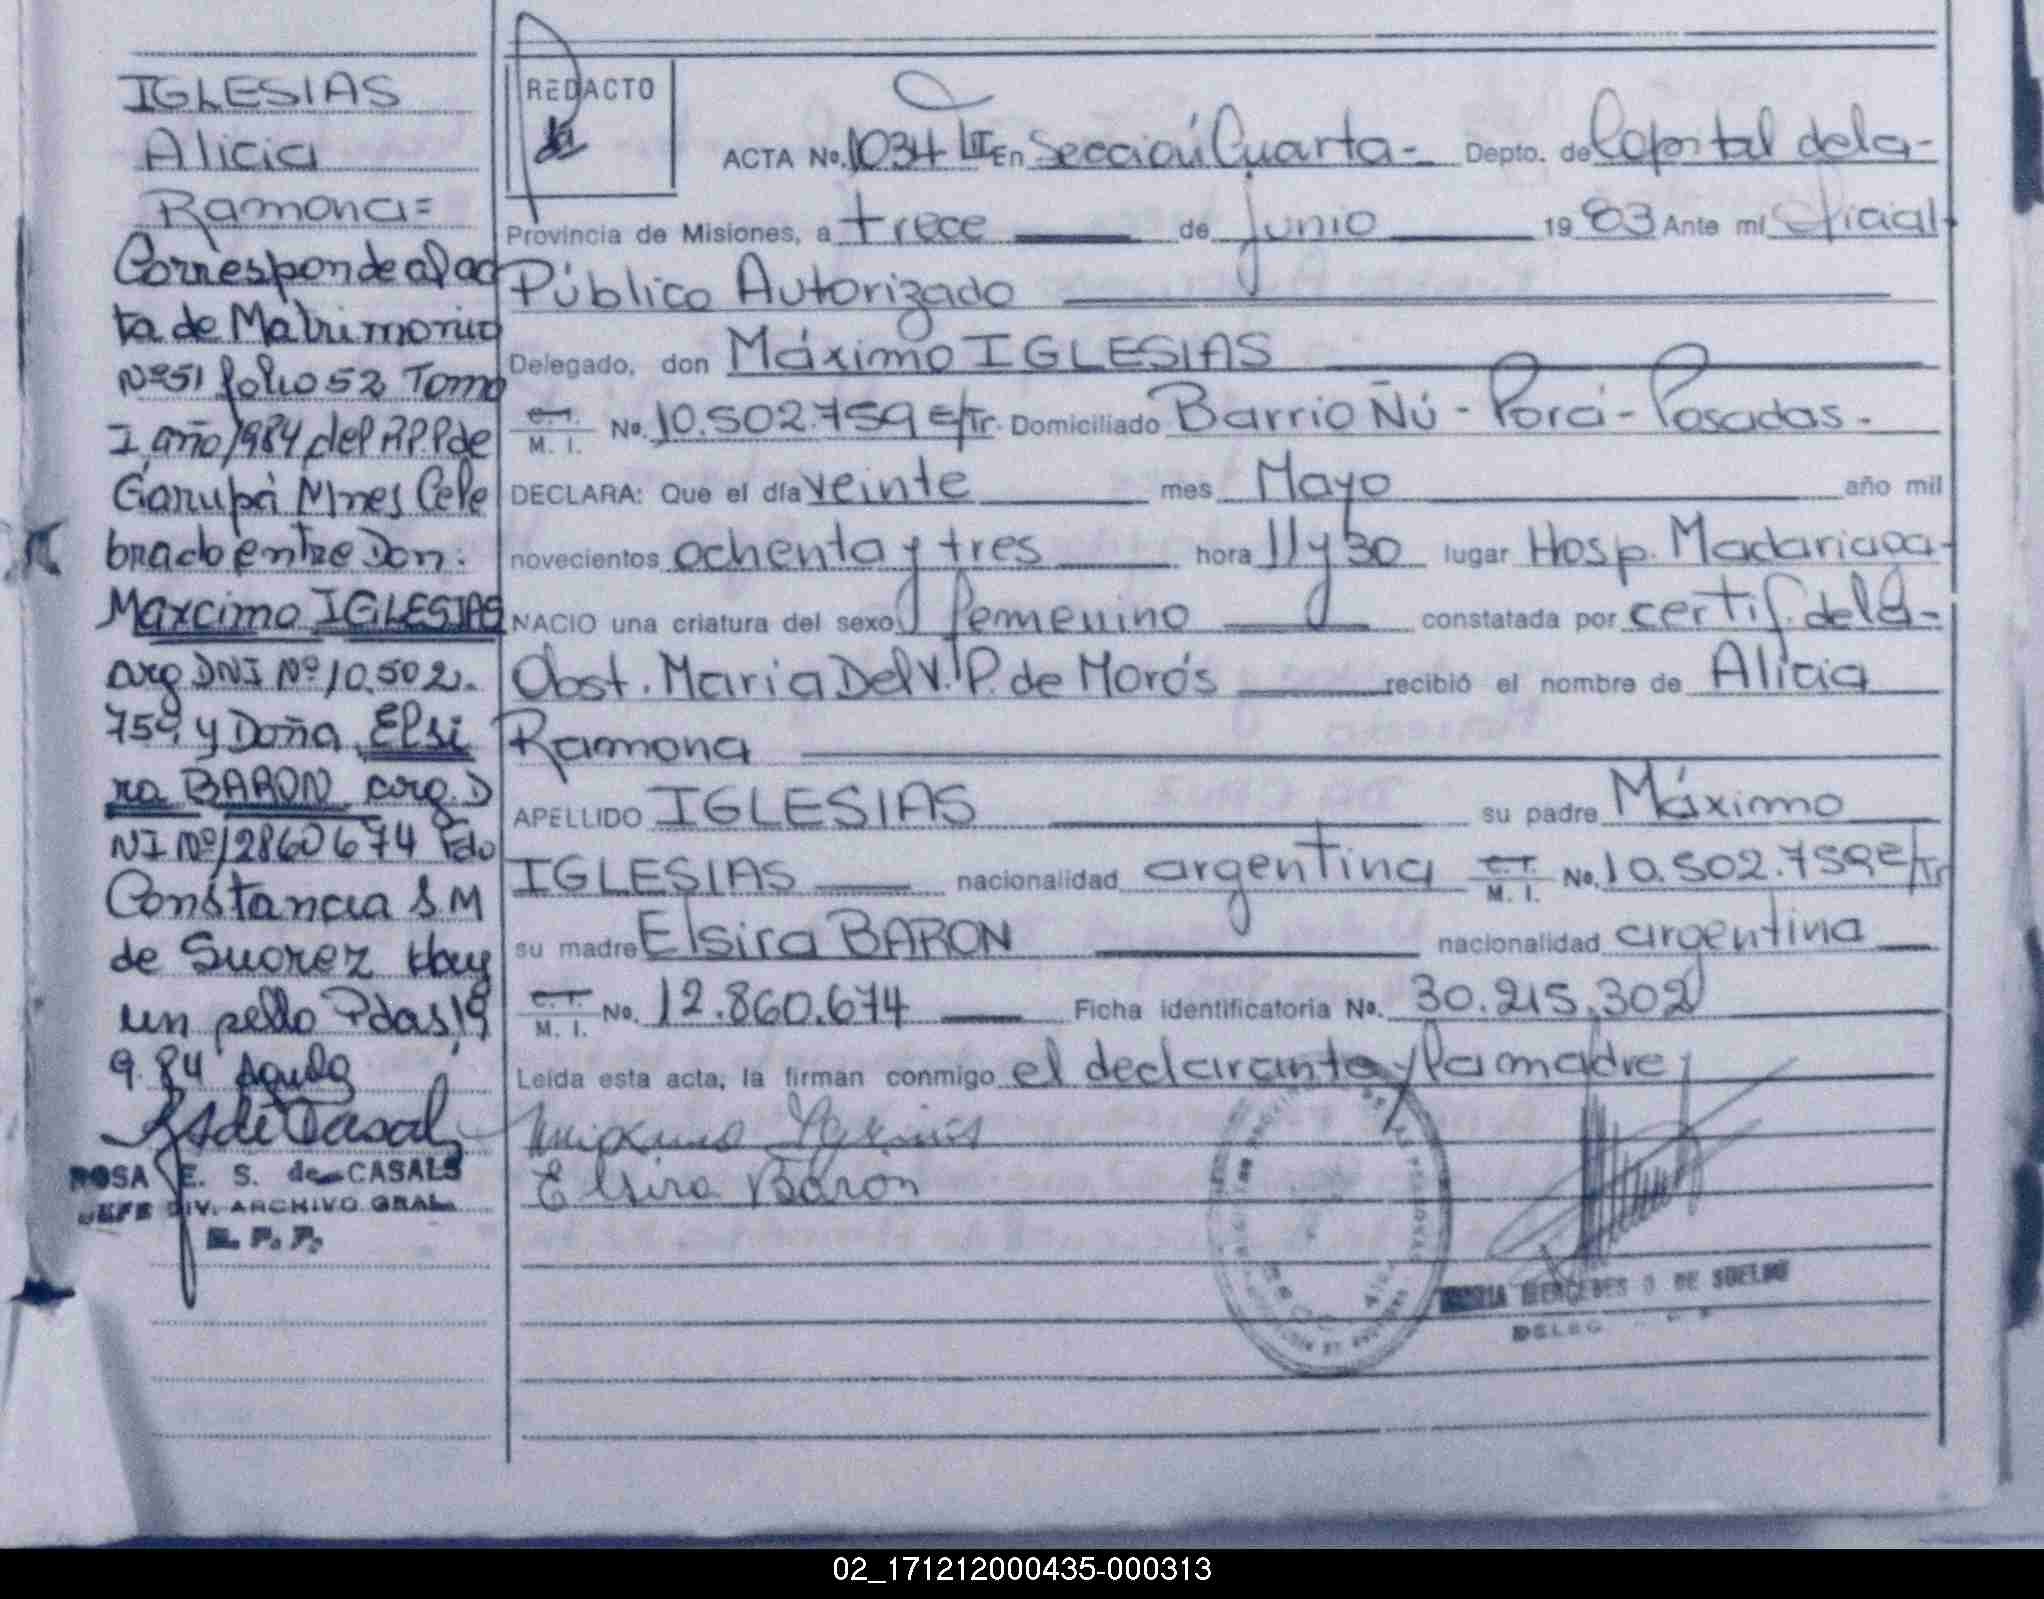 IGLESIAS
Alicia
Ramona=
Corresponde al ac
ta de Matrimonio
Nº 51 folio 52 Tomo
I año 1984 del R.P.P de
Garupá Mnes Cele
brado entre Don:
Maxcimo IGLESIAS
arg DNI Nº 10.502.
759 y Doña Elsi
ra BARON arg. D
NI Nº 12860674 Fdo
Constancia S.M
de Suarez Hay
un sello Pdas 19
9.84
ROSA E. S. de CASALS
JEFE DIV. ARCHIVO GRAL.
R. P. P.
REDACTO
ACTA No. 1034 TII En Sección Cuarta- Depto. de Capital de la-
Provincia de Misiones, a trece de Junio 1983 Ante mí Oficial
Público Autorizado
Delegado, don Máximo IGLESIAS
C.I. M. I. No. 10.502.759 E/Tr. Domiciliado Barrio Ñú - Porá - Posadas.
DECLARA: Que el día veinte mes Mayo año mil
novecientos ochenta y tres hora 11 y 30 lugar Hosp. Madariaga-
NACIO una criatura del sexo femenino constatada por certif. de la-
Obst. Maria Del V. P. de Morós recibió el nombre de Alicia
Ramona
APELLIDO IGLESIAS su padre Máximo
IGLESIAS nacionalidad argentina C.I. M. I. No. 10.502.759 E/Tr
su madre Elsira BARON nacionalidad argentina
C.I. M. I. No. 12.860.674 Ficha identificatoria No. 30.215.302
Leída esta acta, la firman conmigo el declarante y la madre
Maximo Iglesias
Elsira Barón
MARIA MERCEDES O. DE SOELHO
DELEG
02_171212000435-000313